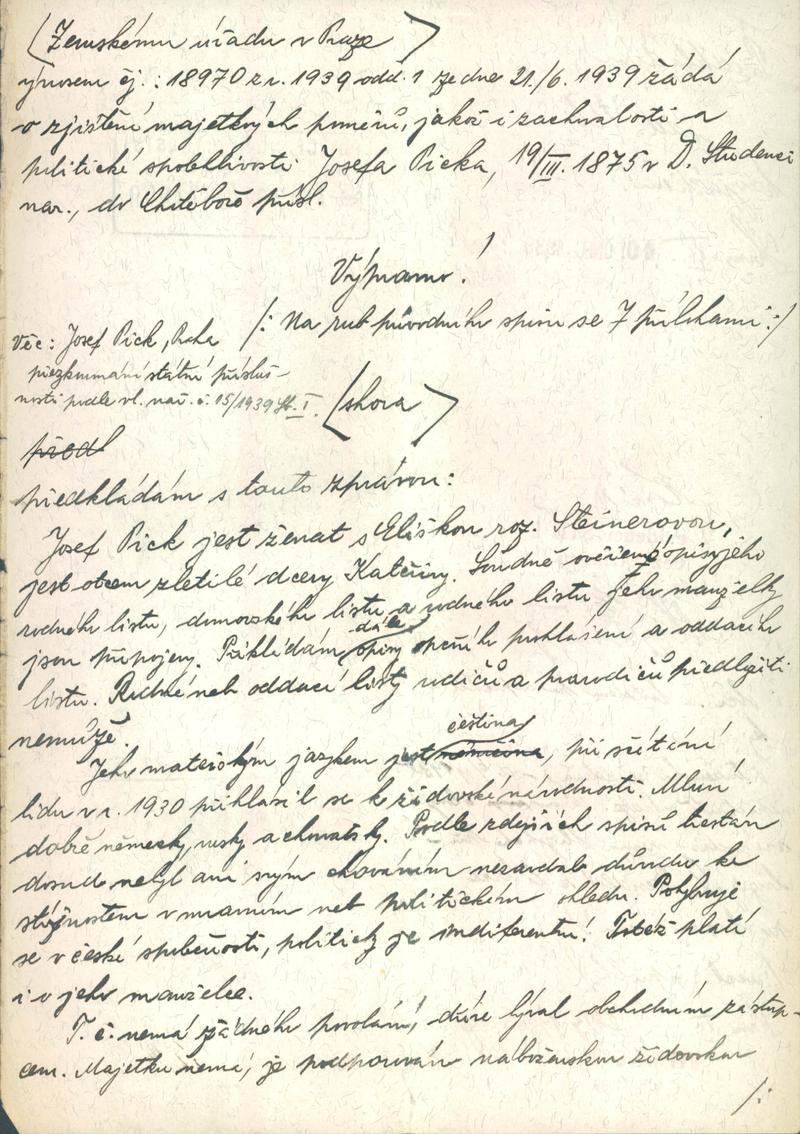 (Zemskému úřadu v Praze)
výnosem čj.: 18970 z r. 1939 odd. 1 ze dne 21./6. 1939 žádá
o zjištění majetkových poměrů, jakož i zachovalosti a
politické spolehlivosti Josefa Picka, 19/III. 1875 v D. Studenci
nar., do Chotěboře přísl.
Výpravo!
/: Na rub původního spisu se 7 přílohami :/
Věc: Josef Pick, Praha
přezkoumání státní přísluš-
nosti podle vl. nař. č. 15/1939 Sb. I.
(shora)
před
předkládám s touto zprávou:
Josef Pick jest ženat s Eliškou roz. Steinerovou,
jest otcem zletilé dcery Kateřiny. Soudně ověřené opisy jeho
rodného listu, domovského listu a rodného listu jeho manželky
jsou připojeny. Přikládám
dále
opisy
prohlášení a oddacího
listu. Rodné neb oddací listy rodičů a prarodičů předložiti
nemůže.
čeština
Jeho mateřským jazykem jest němčina, při sčítání
lidu v r. 1930 přihlásil se k židovské národnosti. Mluví
dobře německy, rusky a chorvatsky. Podle zdejších spisů trestán
dosud nebyl ani svým chováním nezavdal důvodu ke
stížnostem v mravním neb politickém ohledu. Pohybuje
se v české společnosti, politicky je indiferentní. Totéž platí
i o jeho manželce.
T. č. nemá žádného povolání, dříve býval obchodním zástup-
cem. Majetku nemá, je podporován náboženskou židovskou
/: